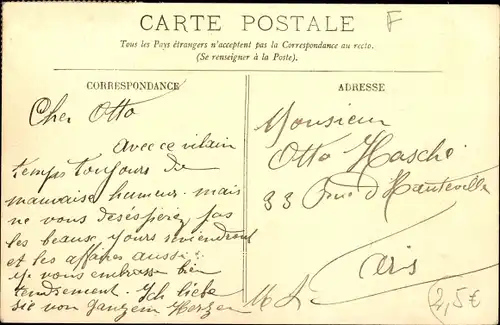 CARTE POSTALE
F
Tous les Pays étrangers n'acceptent pas la Correspondance au recto.
(Se renseigner à la Poste).
CORRESPONDANCE
Cher Otto
Avec ce vilain
temps toujours de
mauvaise humeur. mais
ne vous désésperez pas
les beaux jours reviendront
et les affaires aussi.
Je vous embrasse bien
tendrement. Ich liebe
sie von ganzem Herzen
ADRESSE
Monsieur
Otto Hasche
33 Rue d'Hauteville
Paris
2,5€